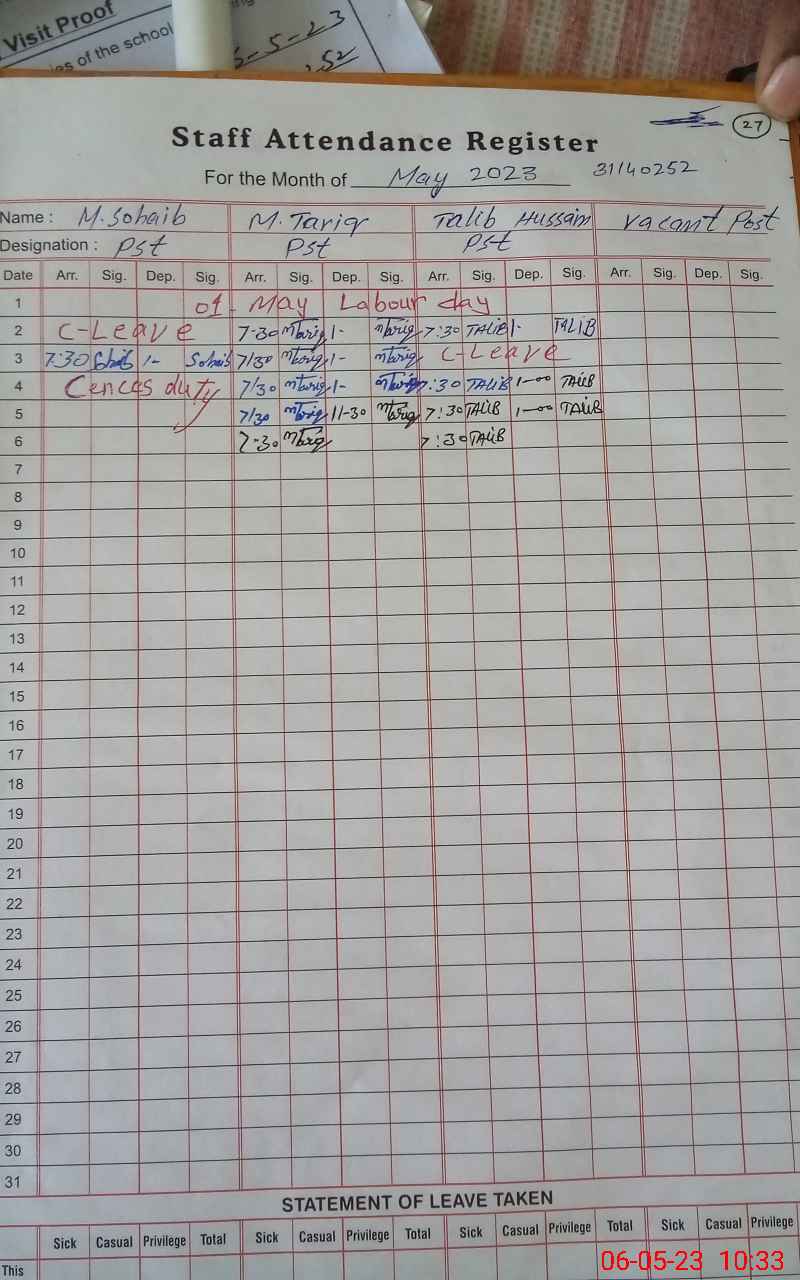 Visit Proof
es of the school
5-23
.52
27
Staff Attendance Register
For the Month of May 2023 31140252
Name : M.Sohaib M.Tariq Talib Hussain vacant Post
Designation : Pst Pst Pst
Date Arr. Sig. Dep. Sig. Arr. Sig. Dep. Sig. Arr. Sig. Dep. Sig. Arr. Sig. Dep. Sig.
1 01- May Labour day
2 C-Leave 7-30 MTariq 1- MTariq 7:30 TALIB 1- TALIB
3 7:30 Sohaib 1- Sohaib 7/30 MTariq 1- MTariq C-Leave
4 Cences duty 7/30 MTariq 1- MTariq 7:30 TALIB 1-00 TALIB
5 7/30 MTariq 11-30 MTariq 7:30 TALIB 1-00 TALIB
6 7-30 MTariq 7:30 TALIB
7
8
9
10
11
12
13
14
15
16
17
18
19
20
21
22
23
24
25
26
27
28
29
30
31
STATEMENT OF LEAVE TAKEN
Sick Casual Privilege Total Sick Casual Privilege Total Sick Casual Privilege Total Sick Casual Privilege
This
06-05-23 10:33